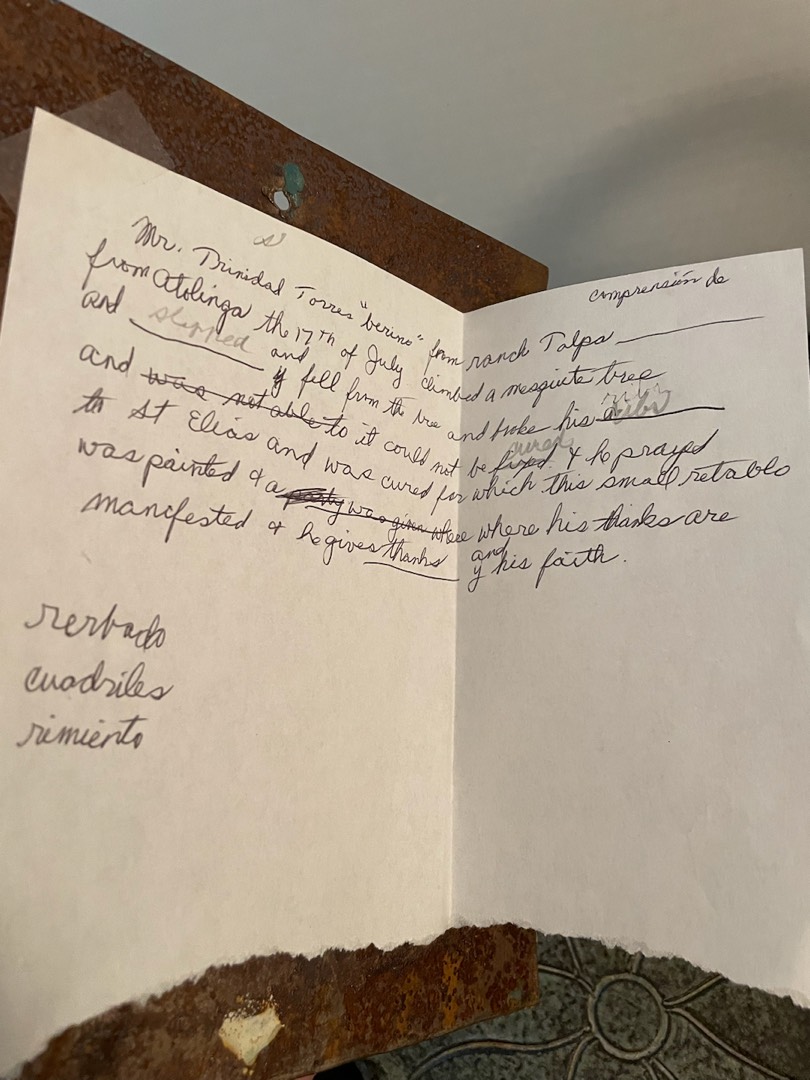 comprensión de
Mr. Trinidad Torres "berino" from ranch Talpa
from Atolinga the 17th of July climbed a mesquite tree
and slipped and y fell from the tree and broke his
and was not able to it could not be fixed cured & he prayed
to St Elias and was cured for which this small retablo
was painted & a was given where where his thanks are
manifested & he gives thanks and y his faith.
rerbado
cuadriles
rimiento